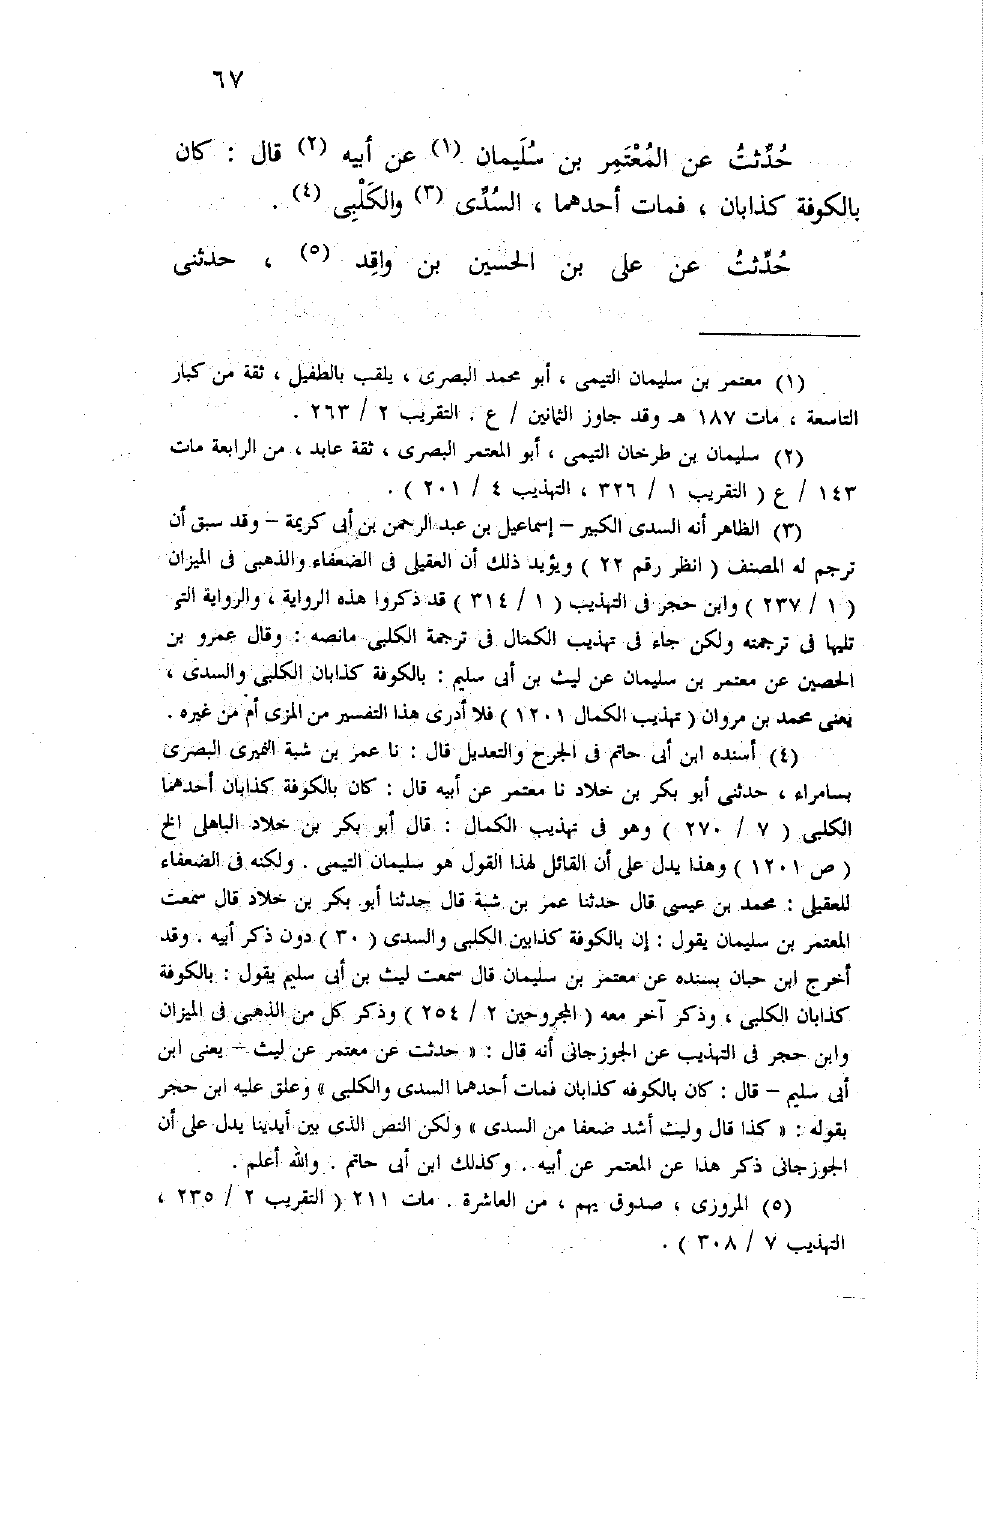 ٦٧
حُدِّثتُ عن المُعْتَمِر بن سُلَيمان (١) عن أبيه (٢) قال : كان
بالكوفة كذابان ، فمات أحدهما ، السُدِّى (٣) والكَلْبِى (٤) .
حُدِّثتُ عن على بن الحسين بن واقِد (٥) ، حدثنى
(١) معتمر بن سليمان التيمى ، أبو محمد البصرى ، يلقب بالطفيل ، ثقة من كبار
التاسعة ، مات ١٨٧ هـ وقد جاوز الثمانين / ع . التقريب ٢ / ٢٦٣ .
(٢) سليمان بن طرخان التيمى ، أبو المعتمر البصرى ، ثقة عابد ، من الرابعة مات
١٤٣ / ع ( التقريب ١ / ٣٢٦ ، التهذيب ٤ / ٢٠١ ) .
(٣) الظاهر أنه السدى الكبير – إسماعيل بن عبد الرحمن بن أبى كريمة – وقد سبق أن
ترجم له المصنف ( انظر رقم ٢٢ ) ويؤيد ذلك أن العقيلى فى الضعفاء والذهبى فى الميزان
( ١ / ٢٣٧ ) وابن حجر فى التهذيب ( ١ / ٣١٤ ) قد ذكروا هذه الرواية ، والرواية التى
تليها فى ترجمته ولكن جاء فى تهذيب الكمال فى ترجمة الكلبى مانصه : وقال عمرو بن
الحصين عن معتمر بن سليمان عن ليث بن أبى سليم : بالكوفة كذابان الكلبى والسدى ،
يعنى محمد بن مروان ( تهذيب الكمال ١٢٠١ ) فلا أدرى هذا التفسير من المزى أم من غيره .
(٤) أسنده ابن أبى حاتم فى الجرح والتعديل قال : نا عمر بن شبة النميرى البصرى
بسامراء ، حدثنى أبو بكر بن خلاد نا معتمر عن أبيه قال : كان بالكوفة كذابان أحدهما
الكلبى ( ٧ / ٢٧٠ ) وهو فى تهذيب الكمال : قال أبو بكر بن خلاد الباهلى الخ
( ص ١٢٠١ ) وهذا يدل على أن القائل لهذا القول هو سليمان التيمى . ولكنه فى الضعفاء
للعقيلى : محمد بن عيسى قال حدثنا عمر بن شبة قال حدثنا أبو بكر بن خلاد قال سمعت
المعتمر بن سليمان يقول : إن بالكوفة كذابين الكلبى والسدى ( ٣٠ ) دون ذكر أبيه . وقد
أخرج ابن حبان بسنده عن معتمر بن سليمان قال سمعت ليث بن أبى سليم يقول : بالكوفة
كذابان الكلبى ، وذكر آخر معه ( المجروحين ٢ / ٢٥٤ ) وذكر كل من الذهبى فى الميزان
وابن حجر فى التهذيب عن الجوزجانى أنه قال : « حدثت عن معتمر عن ليث – يعنى ابن
أبى سليم – قال : كان بالكوفه كذابان فمات أحدهما السدى والكلبى » وعلق عليه ابن حجر
بقوله : « كذا قال وليث أشد ضعفا من السدى » ولكن النص الذى بين أيدينا يدل على أن
الجوزجانى ذكر هذا عن المعتمر عن أبيه . وكذلك ابن أبى حاتم . والله أعلم .
(٥) المروزى ، صدوق يهم ، من العاشرة . مات ٢١١ ( التقريب ٢ / ٢٣٥ ،
التهذيب ٧ / ٣٠٨ ) .